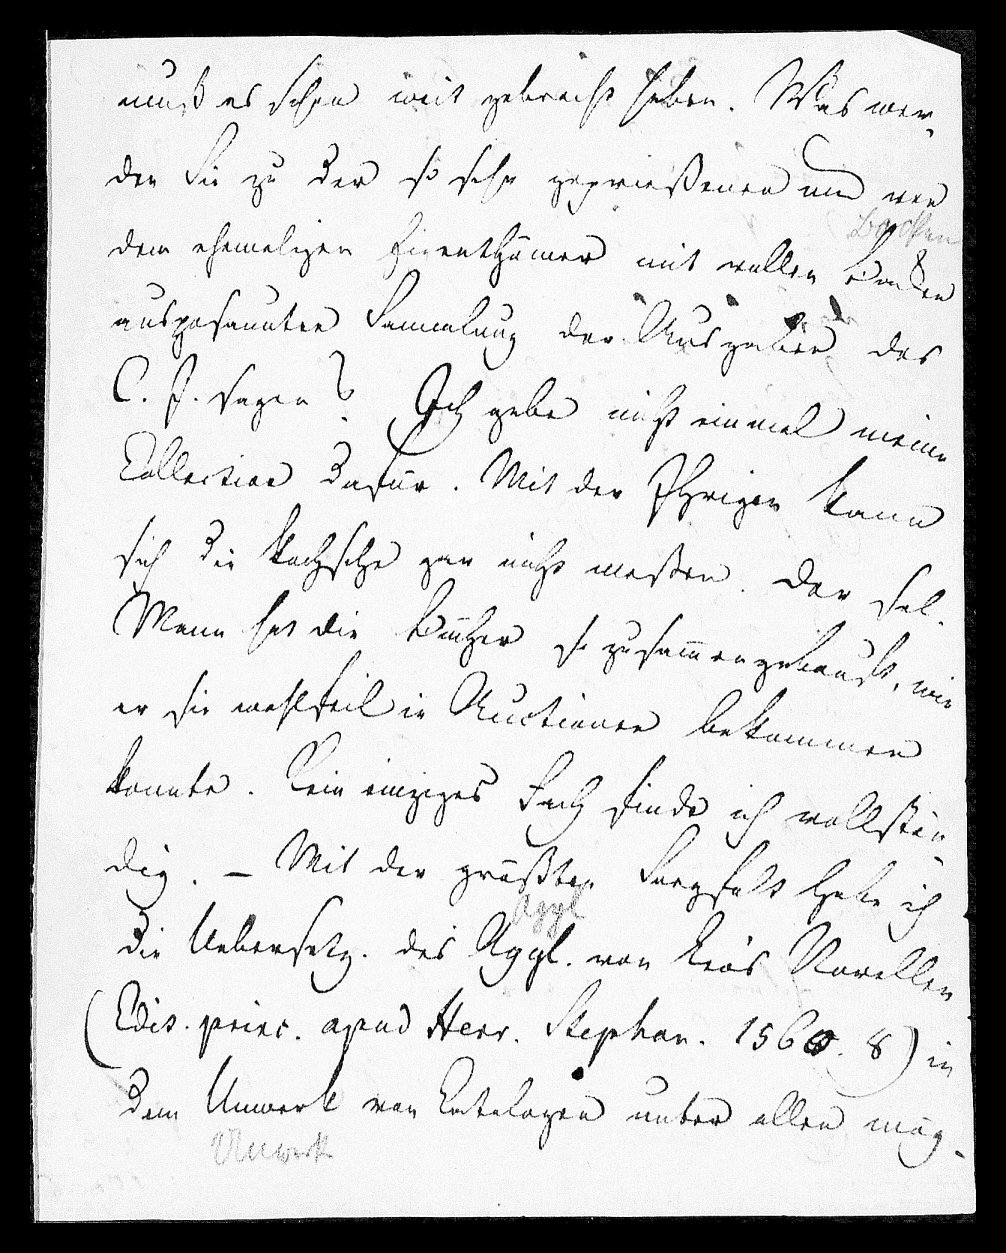 muß es schon weit gebracht haben. Was wer-
den Sie zu der so sehr geprießenen und von
Backen
dem ehemaligen Eigenthümer mit vollen Backen
ausposaunten Sammlung der Ausgaben des
C. J. sagen? Ich gebe nicht einmal meine
Collection dafür. Mit der Ihrigen kann
sich die Kochsche gar nicht meßen. Der sel.
Mann hat die Bücher so zusammengekauft, wie
er sie wohlfeil in Auctionen bekommen
konnte. Kein einziges Fach finde ich vollstän-
dig. – Mit der größten Sorgfalt habe ich
Aggl
die Uebersetz. des Aggl. von Leos Novellen
(Edit. princ. apud Henr. Stephan. 1560. 8) in
dem Unwerk von Catalogen unter allen mög-
Unwerk